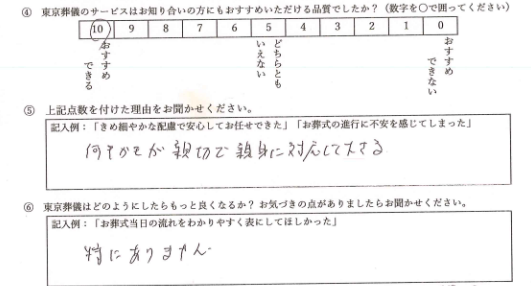 ④ 東京葬儀のサービスはお知り合いの方にもおすすめいただける品質でしたか?（数字を○で囲ってください）
10 9 8 7 6 5 4 3 2 1 0
おすすめできる
どちらともいえない
おすすめできない
⑤ 上記点数を付けた理由をお聞かせください。
記入例：「きめ細やかな配慮で安心してお任せできた」「お葬式の進行に不安を感じてしまった」
何もかもが親切で親身に対応して下さる
⑥ 東京葬儀はどのようにしたらもっと良くなるか? お気づきの点がありましたらお聞かせください。
記入例：「お葬式当日の流れをわかりやすく表にしてほしかった」
特にありません